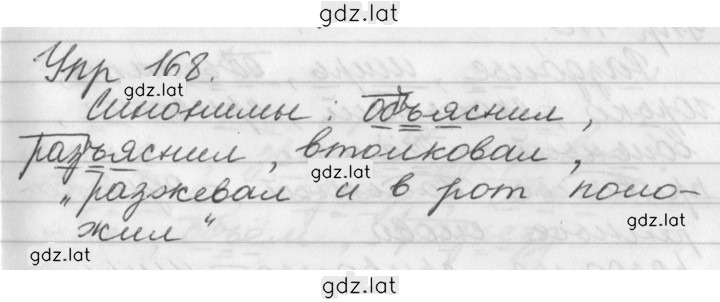 gdz.lat
Упр 168.
gdz.lat
Синонимы: объяснил,
разъяснил, втолковал,
gdz.lat
„разжевал и в рот поло-
gdz.lat
жил"
gdz.lat
gdz.lat